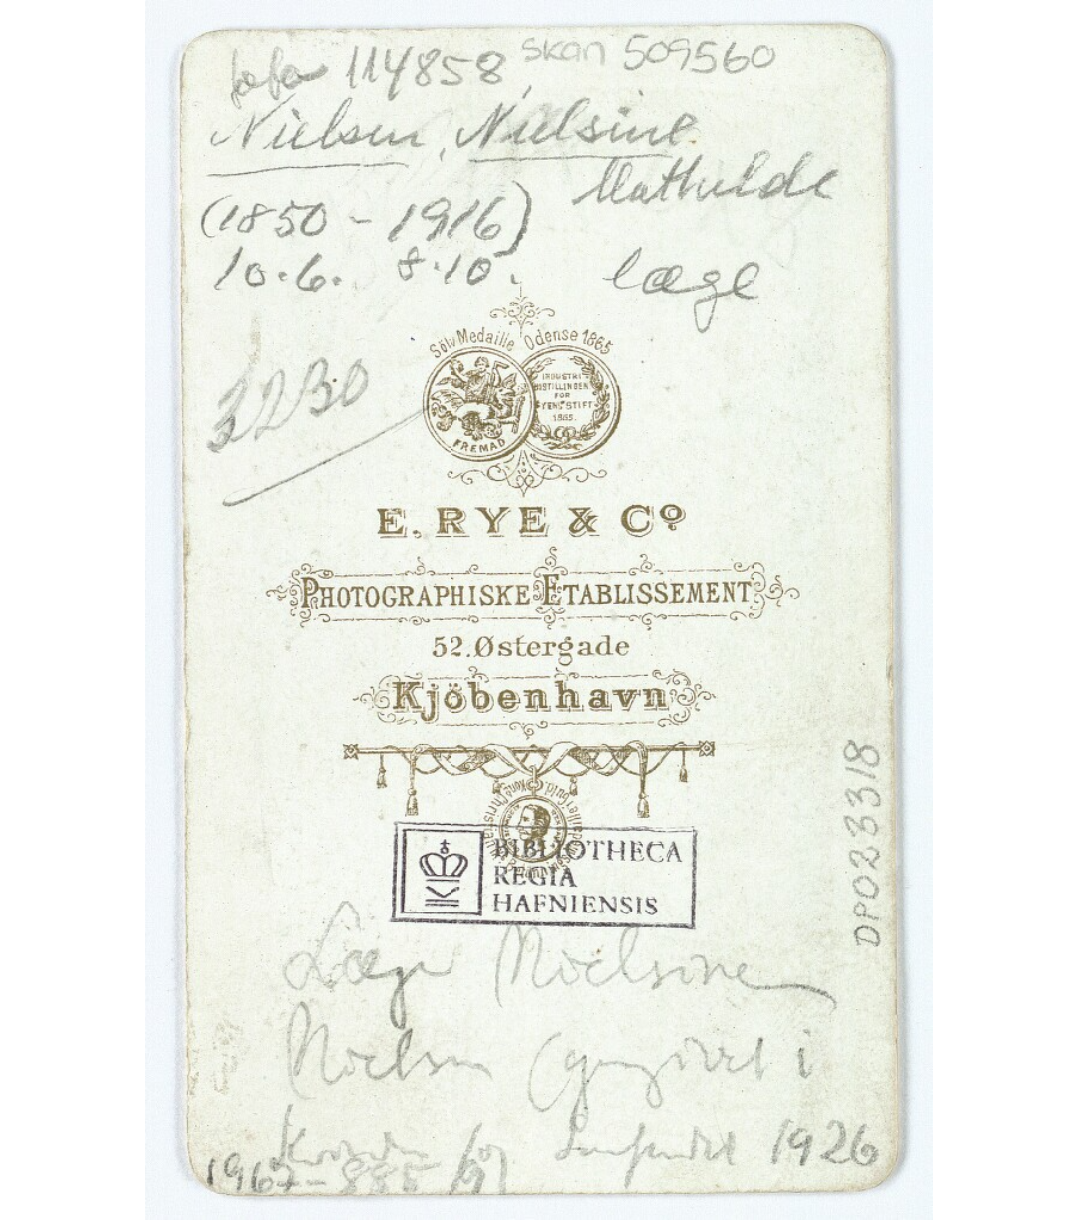 114858 skan 509560
Nielsen, Nielsine
Mathilde
(1850 - 1916)
10.6. 8.10. læge
Sölv Medaille Odense 1865
INDUSTRI
FOR
FYENS STIFT
1865.
FREMAD
E. RYE & Cº
PHOTOGRAPHISKE ETABLISSEMENT
52. Østergade
Kjöbenhavn
BIBLIOTHECA
REGIA
HAFNIENSIS
DP023318
Læge Nielsine
Nielsen
1926
1967-885